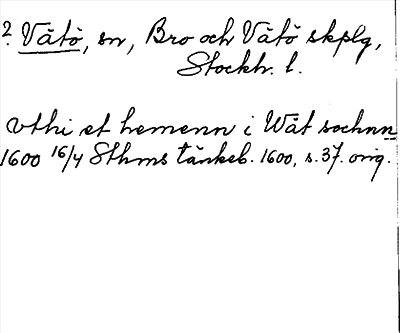 ? Vätö, sn, Bro och Vätö skplg,
Stockh. l.
vthi et hemenn i Wät sochnn
1600 16/4 Sthms tänkeb. 1600, s. 37. orig.